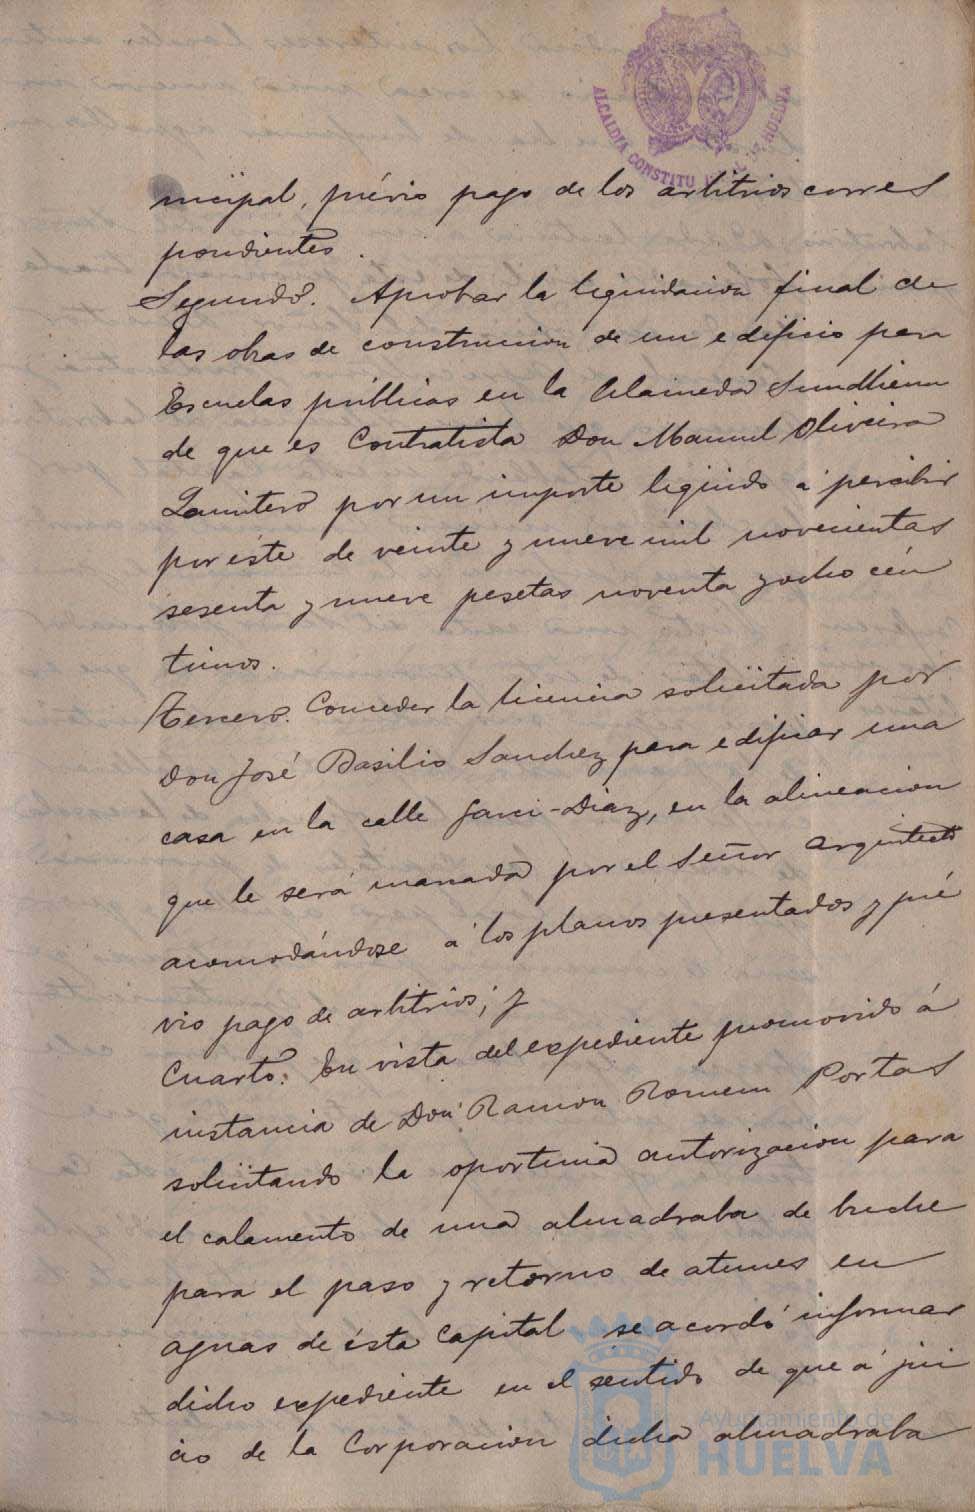 ALCALDIA CONSTITU HUELVA
nicipal, prévio pago de los arbitrios corres
pondientes.
Segundo. Aprobar la liquidacion final de
las obras de construccion de un edificio para
Escuelas públicas en la Alameda Sundheim
de que es Contratista Don Manuel Oliveira
por un importe liquido á percibir
por éste de veinte y nueve mil novecientas
sesenta y nueve pesetas noventa y ocho cén
timos.
Tercero. Conceder la licencia solicitada por
Don José Basilio Sanchez para edificar una
casa en la calle Garci-Diaz, en la alineacion
que le será marcada por el Señor Arquitecto
acomodándose á los planos presentados y pré
vio pago de arbitrios; y
Cuarto. En vista del expediente promovido á
instancia de Don Ramon Romero Portas
solicitando la oportuna autorizacion para
el calamento de una almadraba de buche
para el paso y retorno de atunes en
aguas de ésta Capital se acordó informar
dicho expediente en el sentido de que á jui
cio de la Corporacion dicha almadraba
Ayuntamiento de
HUELVA